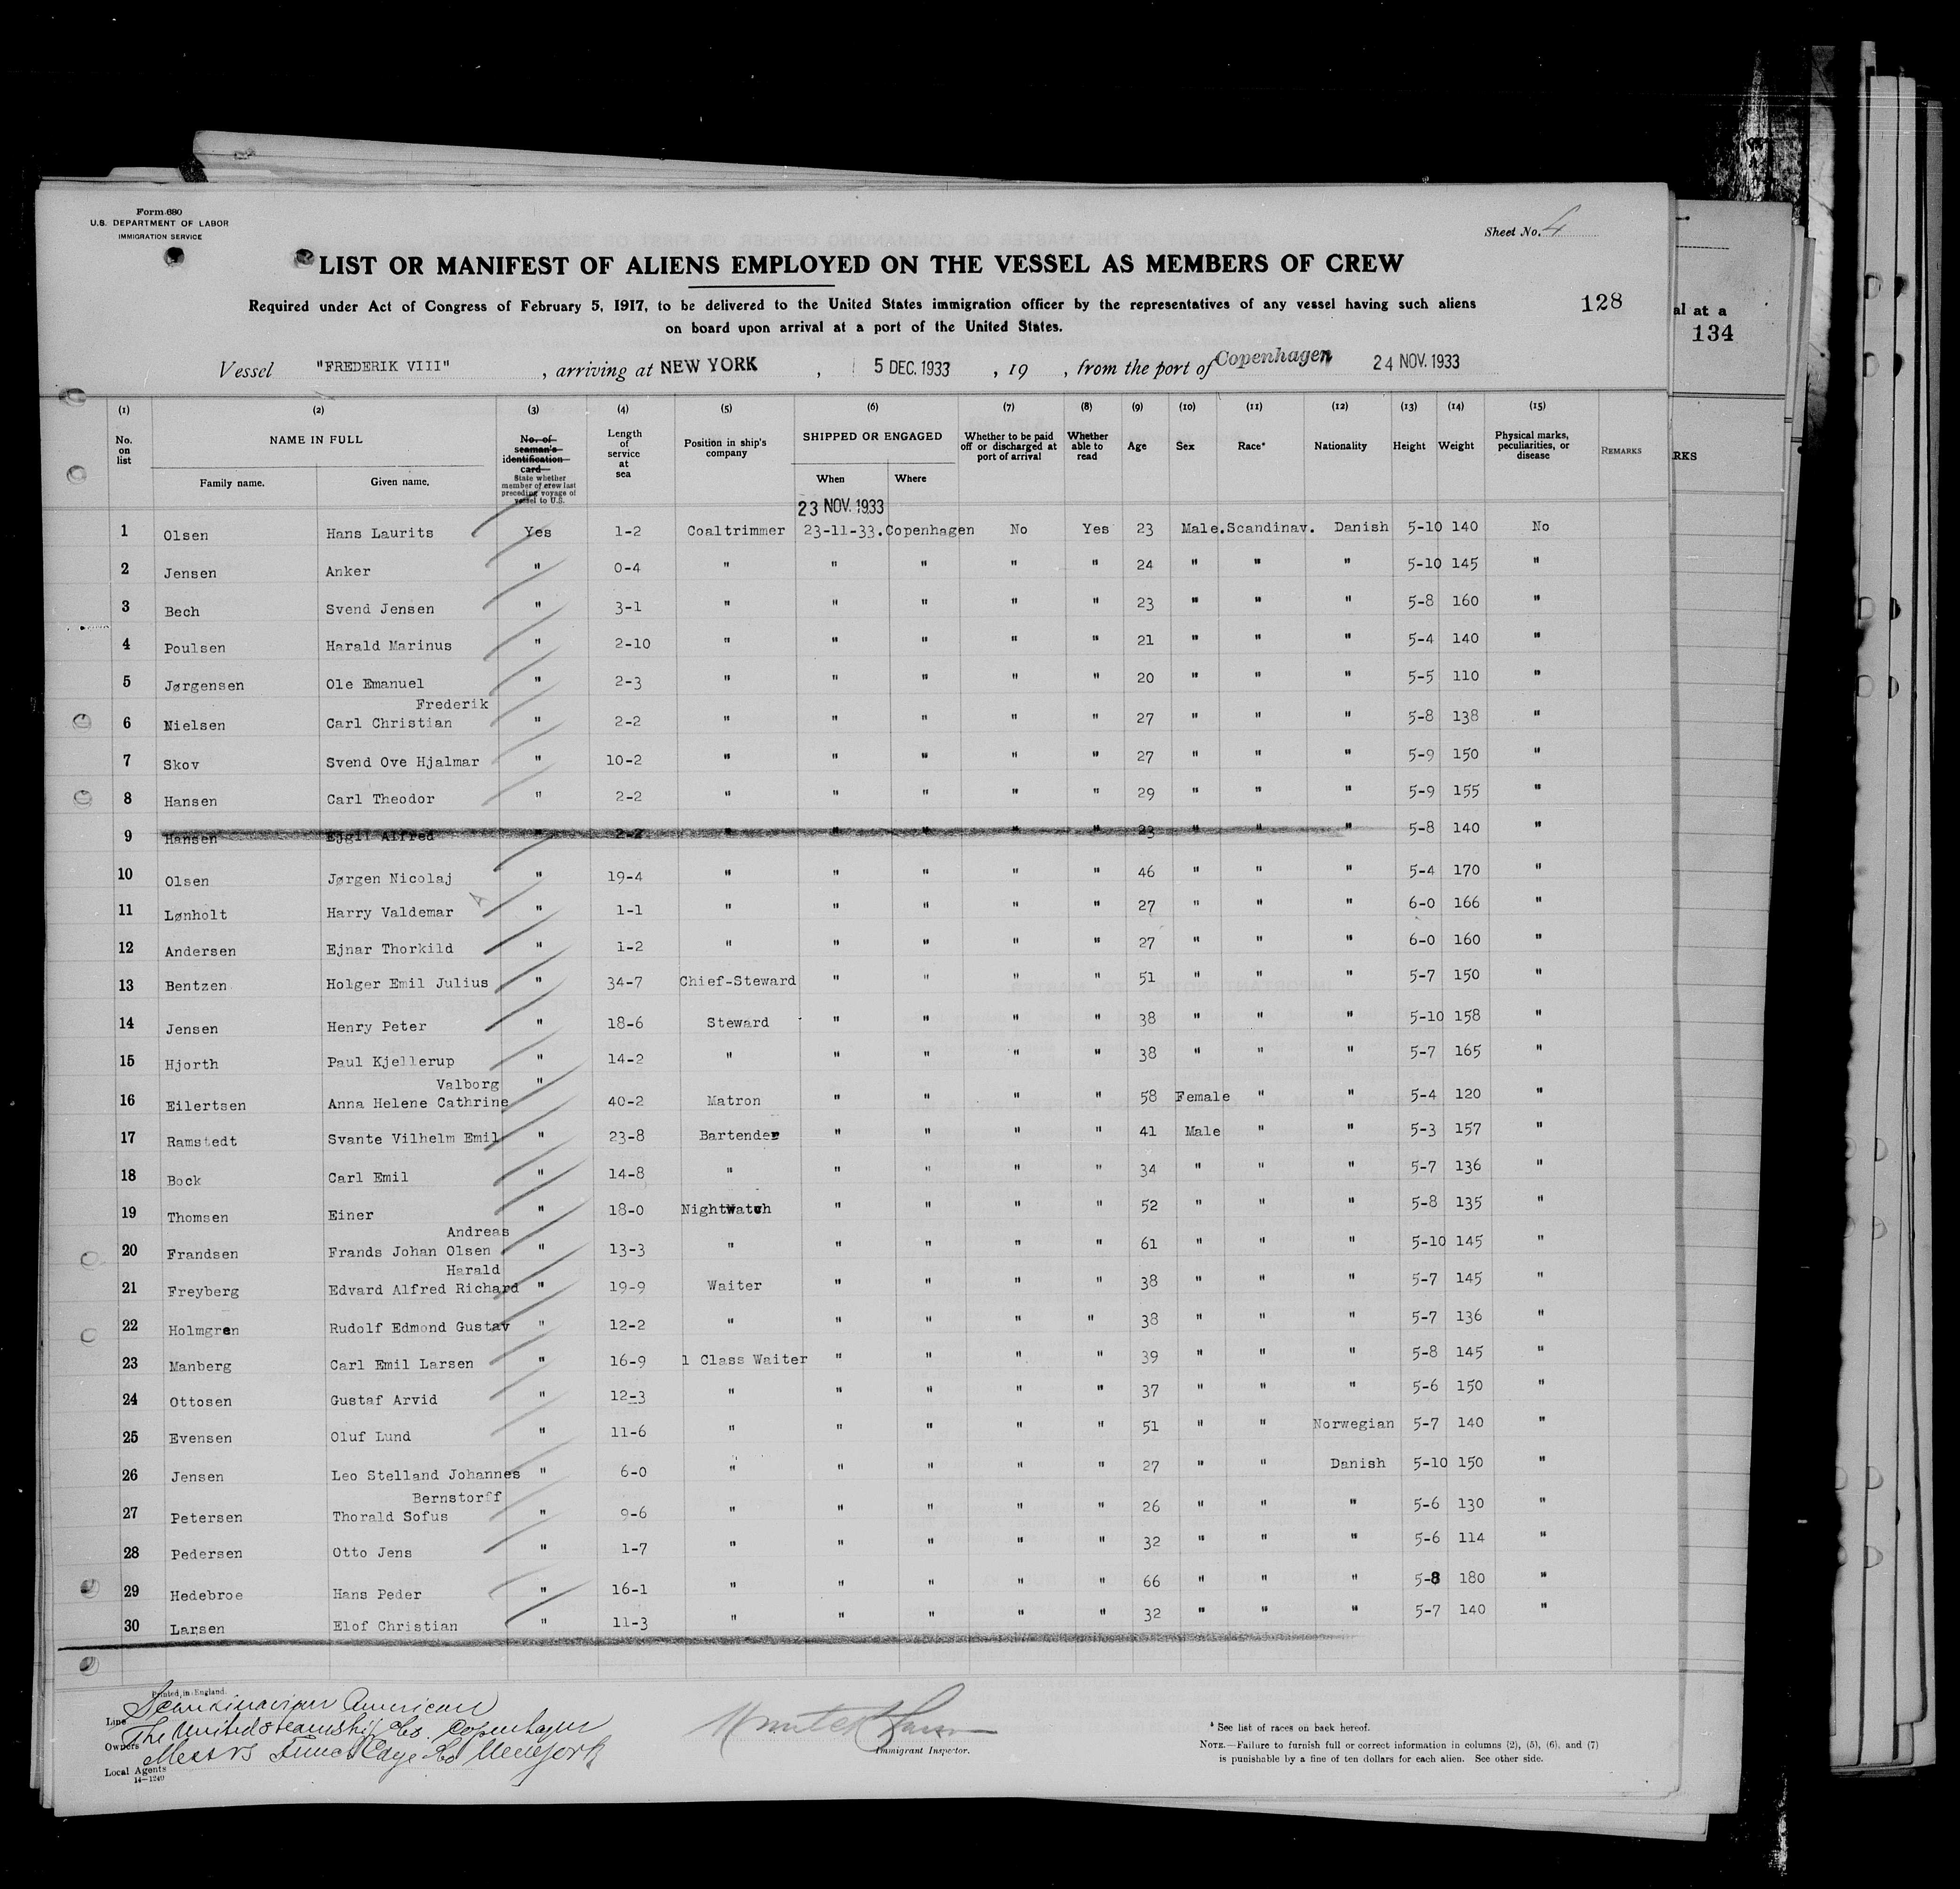 Form 680
U.S. DEPARTMENT OF LABOR
IMMIGRATION SERVICE
Sheet No. 4
LIST OR MANIFEST OF ALIENS EMPLOYED ON THE VESSEL AS MEMBERS OF CREW
Required under Act of Congress of February 5, 1917, to be delivered to the United States immigration officer by the representatives of any vessel having such aliens
on board upon arrival at a port of the United States.
128
al at a
134
Vessel "FREDERIK VIII" , arriving at NEW YORK , 5 DEC. 1933 , 19 , from the port of Copenhagen 24 NOV. 1933
(1) (2) (3) (4) (5) (6) (7) (8) (9) (10) (11) (12) (13) (14) (15)
No. on list NAME IN FULL Family name. Given name. No. of seaman's identification card State whether member of crew last preceding voyage of vessel to U.S. Length of service at sea Position in ship's company SHIPPED OR ENGAGED When Where Whether to be paid off or discharged at port of arrival Whether able to read Age Sex Race* Nationality Height Weight Physical marks, peculiarities, or disease REMARKS
RKS
23 NOV. 1933
1 Olsen Hans Laurits Yes 1-2 Coaltrimmer 23-11-33. Copenhagen No Yes 23 Male. Scandinav. Danish 5-10 140 No
2 Jensen Anker " 0-4 " " " " " 24 " " " 5-10 145 "
3 Bech Svend Jensen " 3-1 " " " " " 23 " " " 5-8 160 "
4 Poulsen Harald Marinus " 2-10 " " " " " 21 " " " 5-4 140 "
5 Jørgensen Ole Emanuel " 2-3 " " " " " 20 " " " 5-5 110 "
Frederik
6 Nielsen Carl Christian " 2-2 " " " " " 27 " " " 5-8 138 "
7 Skov Svend Ove Hjalmar " 10-2 " " " " " 27 " " " 5-9 150 "
8 Hansen Carl Theodor " 2-2 " " " " " 29 " " " 5-9 155 "
9 Hansen Ejgil Alfred " 2-2 " " " " " 23 " " " 5-8 140 "
10 Olsen Jørgen Nicolaj " 19-4 " " " " " 46 " " " 5-4 170 "
11 Lønholt Harry Valdemar " 1-1 " " " " " 27 " " " 6-0 166 "
12 Andersen Ejnar Thorkild " 1-2 " " " " " 27 " " " 6-0 160 "
13 Bentzen Holger Emil Julius " 34-7 Chief-Steward " " " " 51 " " " 5-7 150 "
14 Jensen Henry Peter " 18-6 Steward " " " " 38 " " " 5-10 158 "
15 Hjorth Paul Kjellerup " 14-2 " " " " " 38 " " " 5-7 165 "
Valborg "
16 Eilertsen Anna Helene Cathrine 40-2 Matron " " " " 58 Female " " 5-4 120 "
17 Ramstedt Svante Vilhelm Emil " 23-8 Bartender " " " " 41 Male " " 5-3 157 "
18 Bock Carl Emil " 14-8 " " " " " 34 " " " 5-7 136 "
19 Thomsen Einer " 18-0 Nightwatch " " " " 52 " " " 5-8 135 "
Andreas
20 Frandsen Frands Johan Olsen " 13-3 " " " " " 61 " " " 5-10 145 "
Harald
21 Freyberg Edvard Alfred Richard " 19-9 Waiter " " " " 38 " " " 5-7 145 "
22 Holmgren Rudolf Edmond Gustav " 12-2 " " " " " 38 " " " 5-7 136 "
23 Manberg Carl Emil Larsen " 16-9 1 Class Waiter " " " " 39 " " " 5-8 145 "
24 Ottosen Gustaf Arvid " 12-3 " " " " " 37 " " " 5-6 150 "
25 Evensen Oluf Lund " 11-6 " " " " " 51 " " Norwegian 5-7 140 "
26 Jensen Leo Stelland Johannes " 6-0 " " " " " 27 " " Danish 5-10 150 "
Bernstorff
27 Petersen Thorald Sofus " 9-6 " " " " " 26 " " " 5-6 130 "
28 Pedersen Otto Jens " 1-7 " " " " " 32 " " " 5-6 114 "
29 Hedebroe Hans Peder " 16-1 " " " " " 66 " " " 5-8 180 "
30 Larsen Elof Christian " 11-3 " " " " " 32 " " " 5-7 140 "
Printed in England.
Line Scandinavian American
Owners The United Steamship Co. Copenhagen
Local Agents Messrs Funch Edye & Co New York
14-1240
Immigrant Inspector.
* See list of races on back hereof.
NOTE.—Failure to furnish full or correct information in columns (2), (5), (6), and (7)
is punishable by a fine of ten dollars for each alien. See other side.